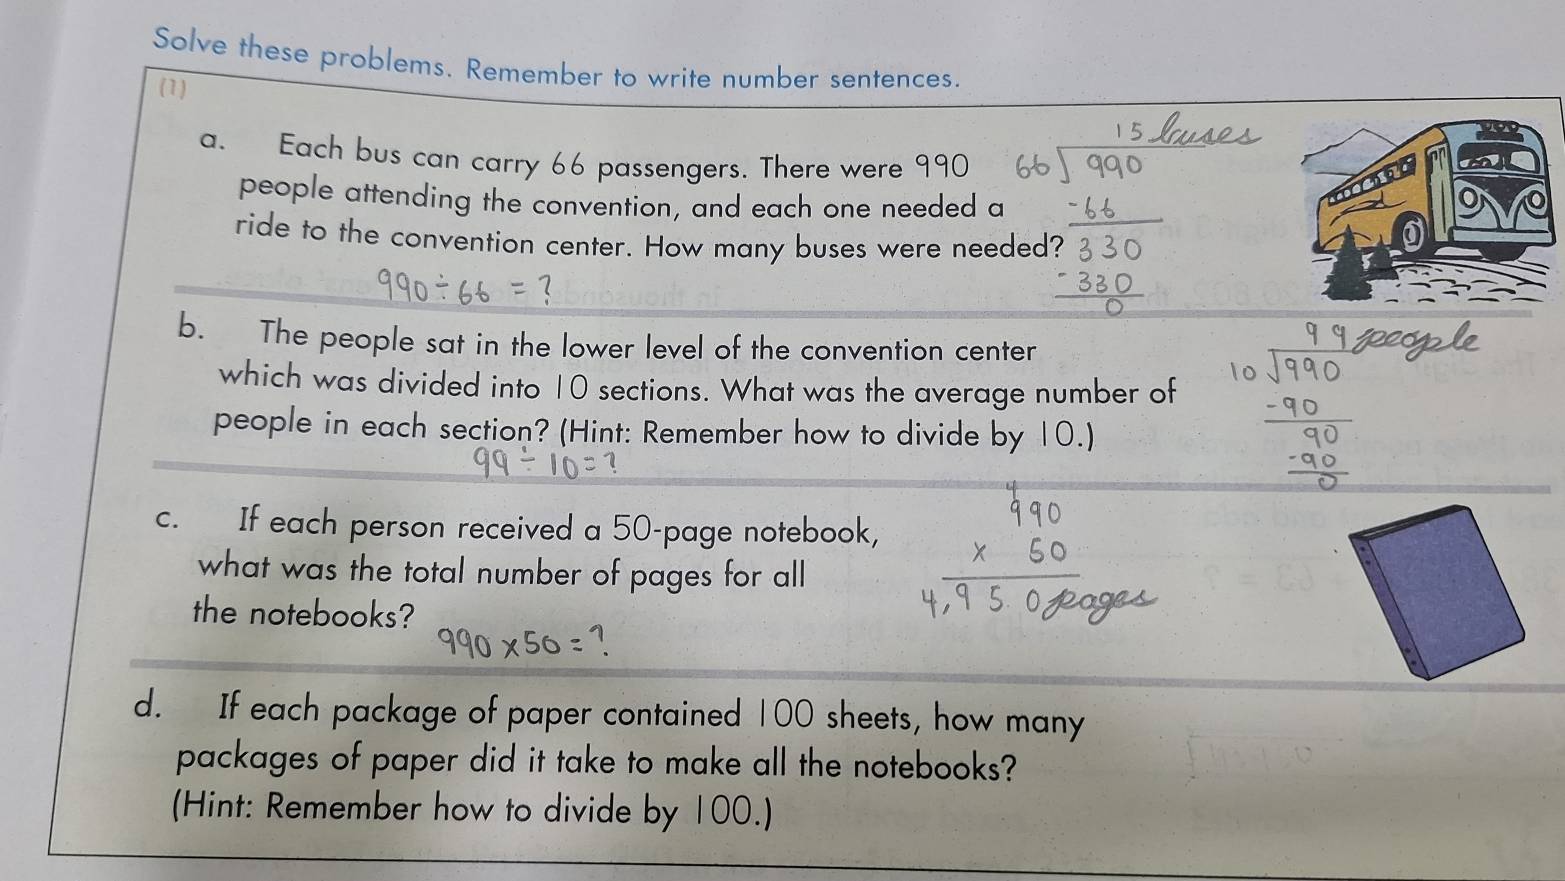 Solve these problems. Remember to write number sentences.
(1)
a. Each bus can carry 66 passengers. There were 990
people attending the convention, and each one needed a
ride to the convention center. How many buses were needed?
990 ÷ 66 = ?
15 buses
66 990
-66
330
-330
0
b. The people sat in the lower level of the convention center
which was divided into 10 sections. What was the average number of
people in each section? (Hint: Remember how to divide by 10.)
99 ÷ 10 = ?
99 people
10 990
-90
90
-90
0
c. If each person received a 50-page notebook,
what was the total number of pages for all
the notebooks?
990 x 50 = ?
4
990
x 50
4,950 pages
d. If each package of paper contained 100 sheets, how many
packages of paper did it take to make all the notebooks?
(Hint: Remember how to divide by 100.)